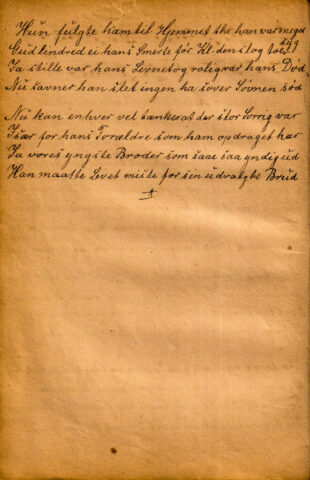 Hun fulgte ham til Hjemmet thi han var meget
Gud lindred ei hans Smerte för Kl. den slog tolv
Ja stille var hans Levnet og rolig var hans Död
Nu savner han slet ingen ha sover Sövnen söd
Nu kan enhver vel tænke at der stor Sorrig var
Især for hans Forældre som ham opdraget har
Ja vores yngste Broder som saae saa yndig ud
Han maatte Levet miste for sin udvalgte Brud